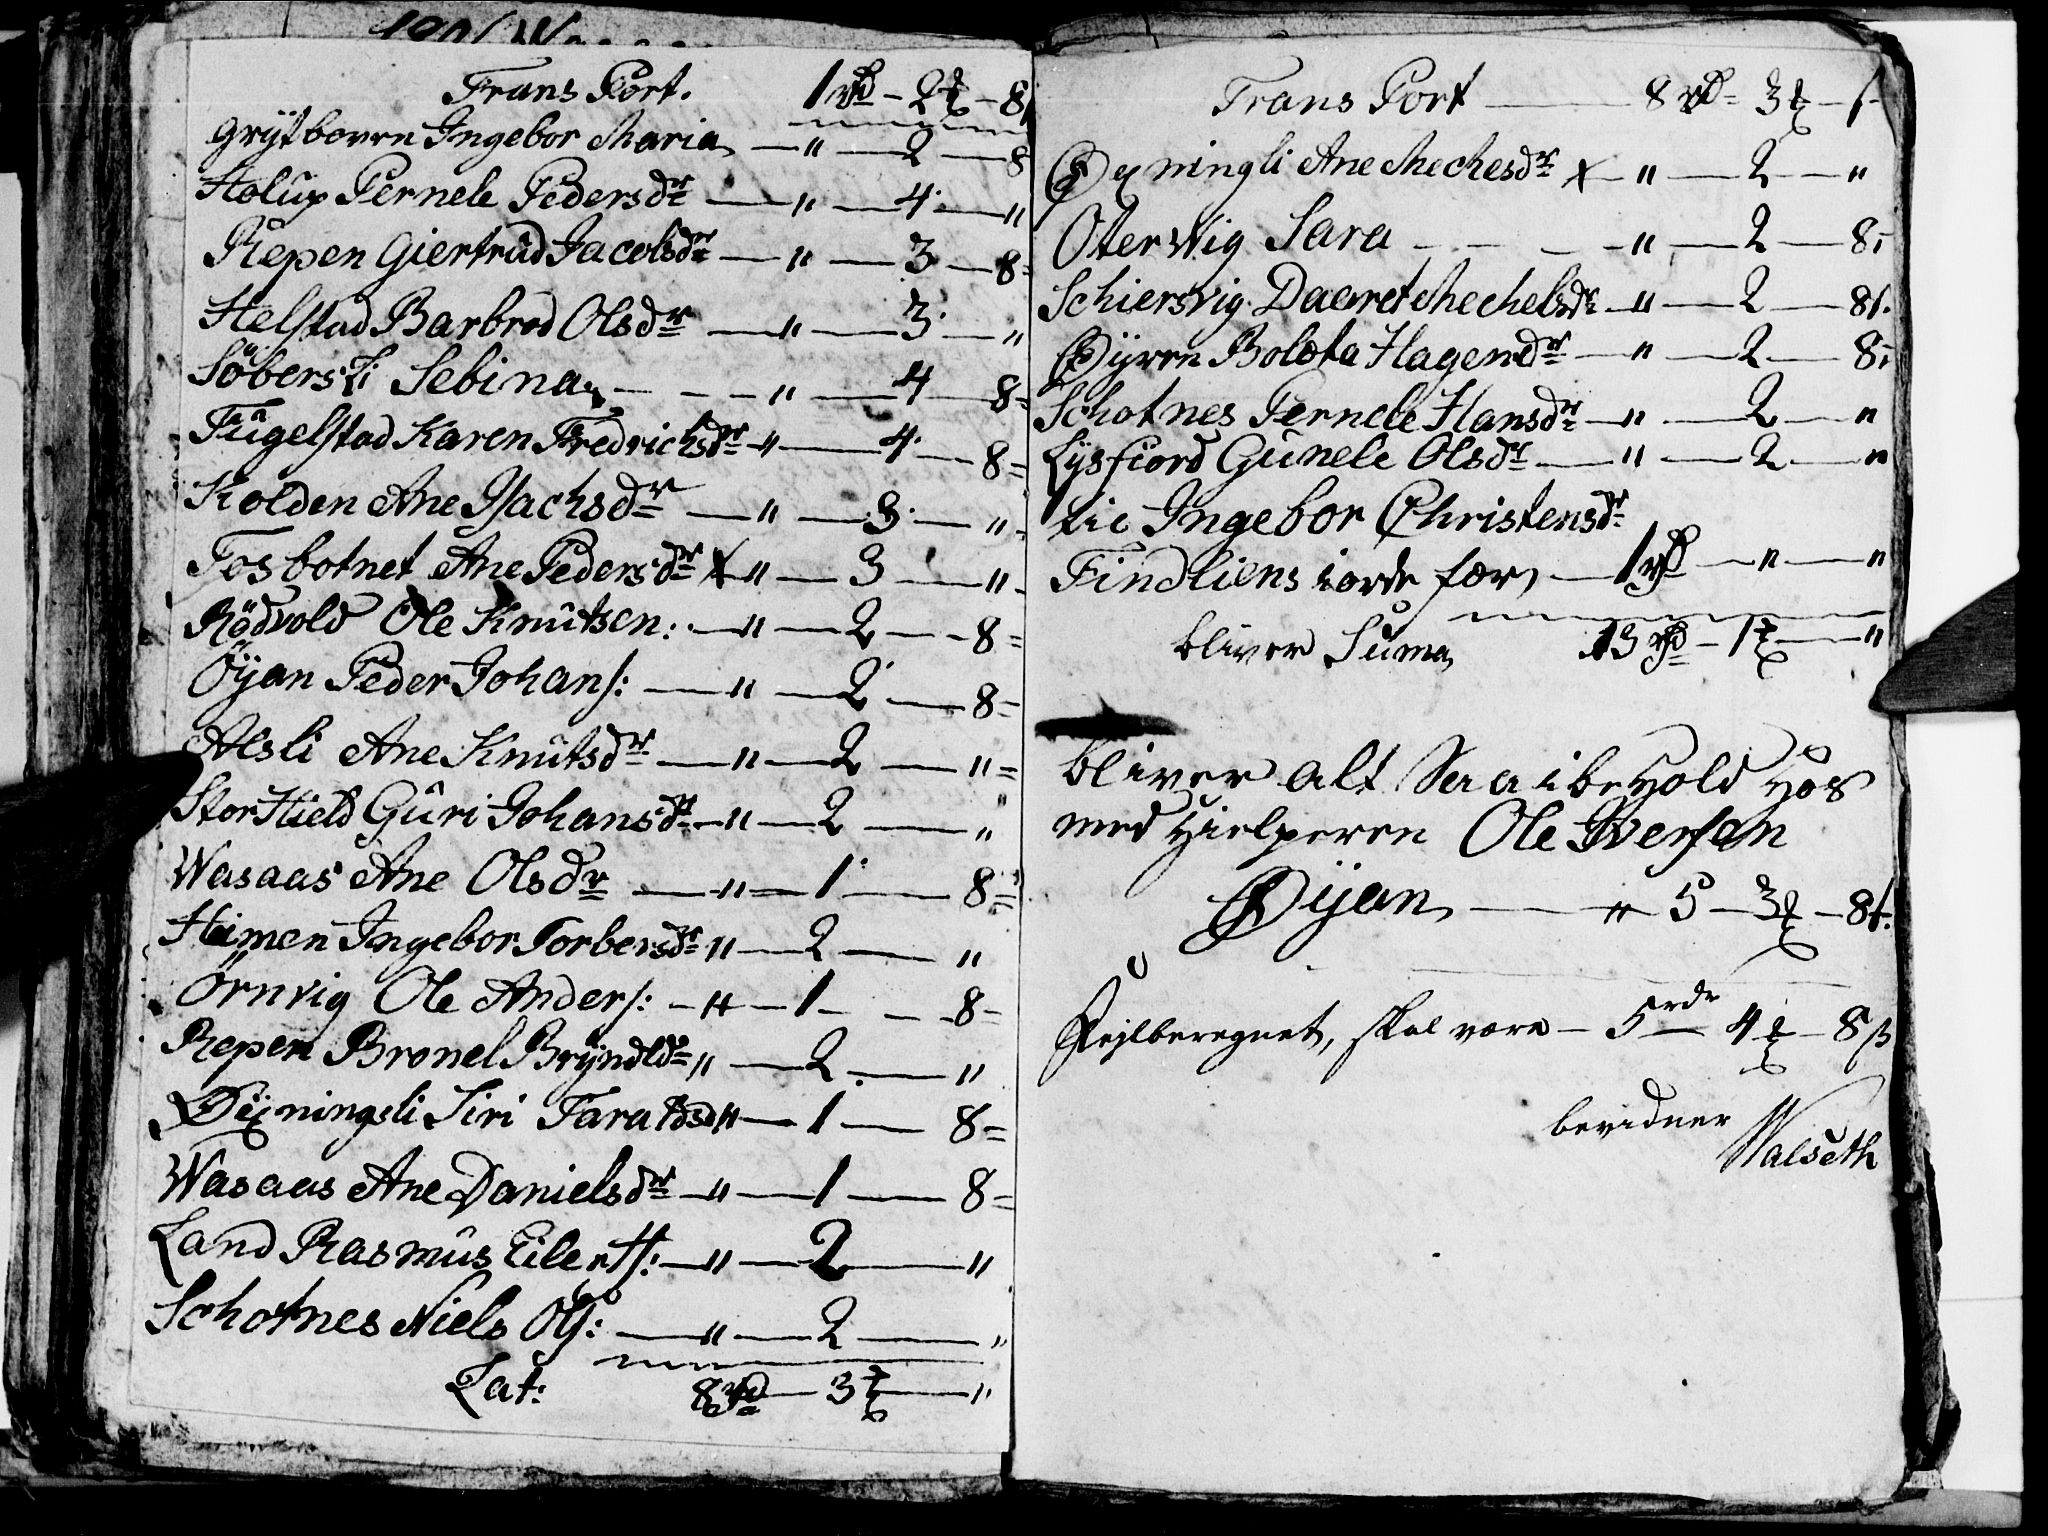 Frans Port. 1 rd - 2 - 8
Grÿtbovren Ingebor Maria — " — 2 — 8
Holup Pernele Pedersdr — " — 4 — "
Repen Giertrud Jacobsdr — " — 3 — 8
Helstad Barbrod Olsdr — " — 3 — "
Söbersli Sebina — " — 4 — 8
Fugelstad Karen Fredrichsdr " — 4 — 8
Kolden Ane Ysachsdr — " — 3 — "
Tosbotnet Ane Pedersdr X " — 3 — "
Rödvold Ole Knutsen: — " — 2 — 8
Öÿan Peder Johans: — " — 2 — 8
Alsli Ane Knutsdr — " — 2 — "
Stor Hield Guri Johansdr — " — 2 — "
Wasaas Ane Olsdr — " — 1 — 8
Heimen Ingebor Torbersdr " — 2 — "
Örnvig Ole Anders: — " — 1 — 8
Repen Bronel Brÿndldr " — 2 — "
Øÿningsli Siri Faraldsd " — 1 — 8
Wasaas Ane Danielsdr — " — 1 — 8
Land Rasmus Eilerts: — " — 2 — "
Schotnes Niels Ols: — " — 2 — "
Lat: 8 rd — 3 — "
Trans Port — 8 rd - 3
Øÿningli Ane Mechesdr X — " — 2 — "
Oterwig Sara — " — 2 — 8
Schiersvig Daaret Mechelsdr — " — 2 — 8
Øÿren Boleta Hagensdr — " — 2 — 8
Schotnes Pernele Hansdr — " — 2 — "
Lÿsfiord Gunele Olsdr — " — 2 — "
Lie Ingebor Christensdr
Findliens iorde fær — 1 rd — " — "
bliver Suma 13 rd - 1 — "
bliver alt Saa i behold hos
medhielperen Ole Iversen
Øÿan — " 5 — 3 — 8
Fejlberegnet, skal være — 5 rdr 4 — 8 ß
bevidner
Walseth